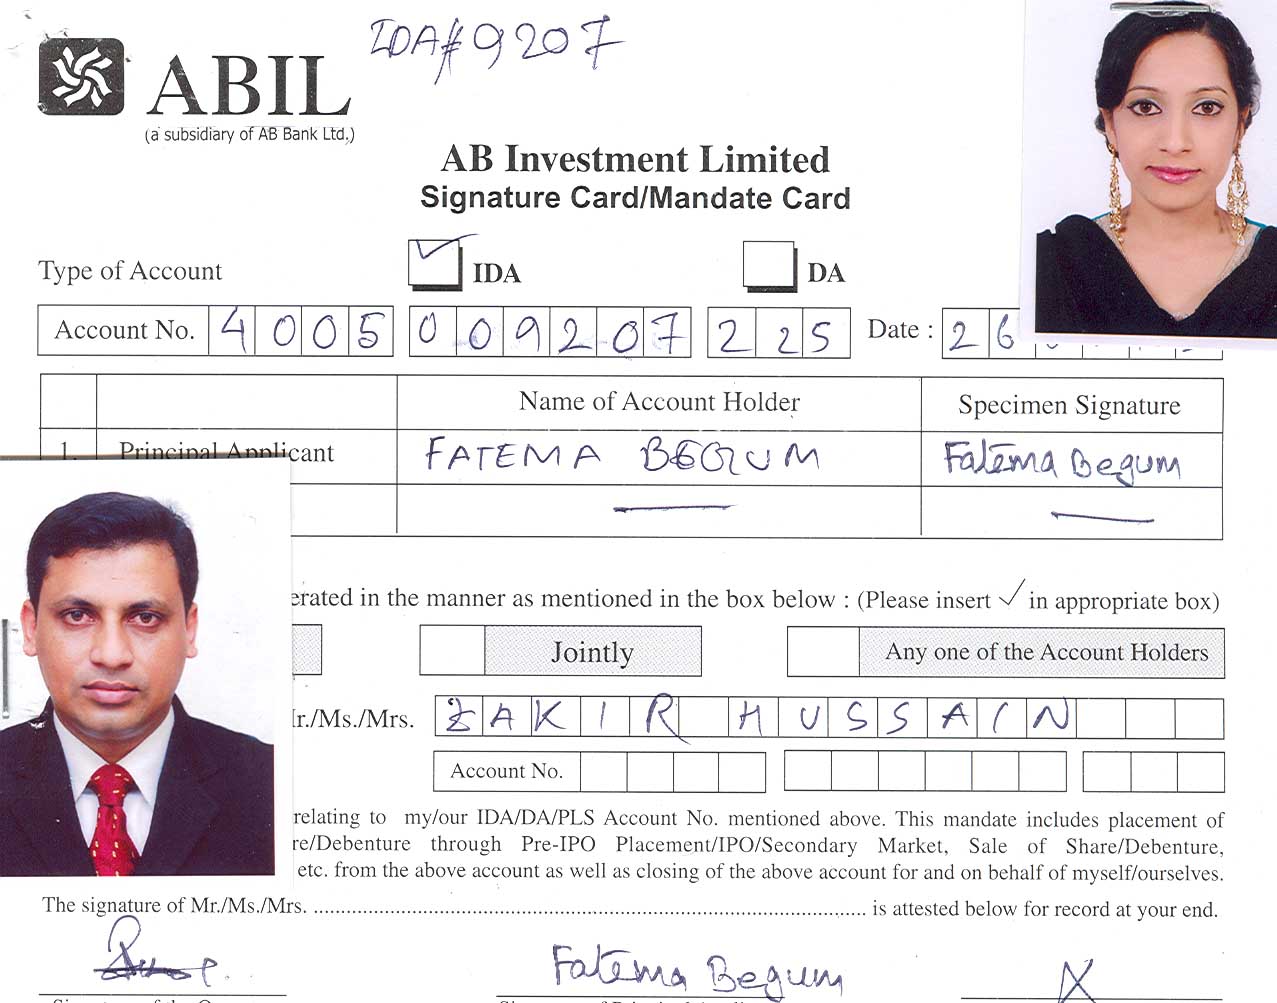 IDA# 9207
ABIL
(a subsidiary of AB Bank Ltd.)
AB Investment Limited
Signature Card/Mandate Card
Type of Account IDA DA
Account No. 4005 009207 225 Date : 26
Name of Account Holder Specimen Signature
1. Principal Applicant FATEMA BEGUM Fatema Begum
erated in the manner as mentioned in the box below : (Please insert ✓ in appropriate box)
Jointly Any one of the Account Holders
Mr./Ms./Mrs. ZAKIR HUSSAIN
Account No.
relating to my/our IDA/DA/PLS Account No. mentioned above. This mandate includes placement of
re/Debenture through Pre-IPO Placement/IPO/Secondary Market, Sale of Share/Debenture,
etc. from the above account as well as closing of the above account for and on behalf of myself/ourselves.
The signature of Mr./Ms./Mrs. .......... is attested below for record at your end.
Fatema Begum X